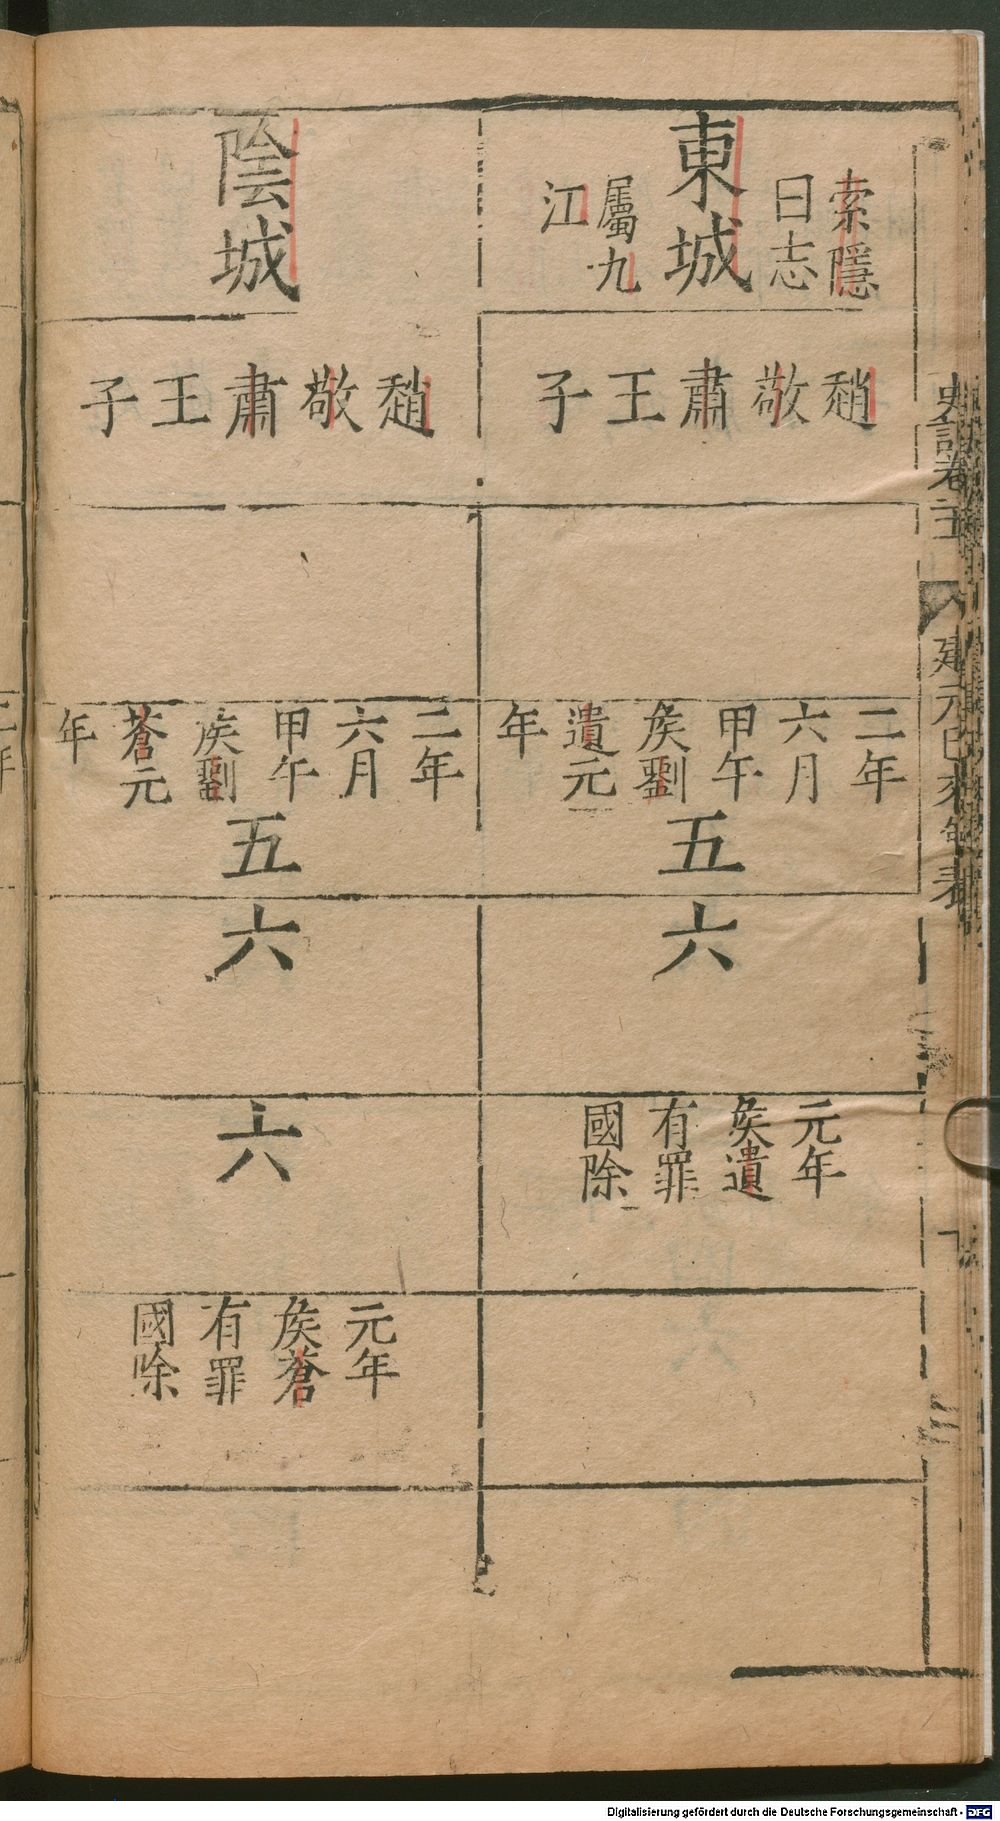 索隱
曰志
東城
屬九
江
趙敬肅王子
二年
六月
甲午
矦劉
遺元
年
五
六
元年
矦遺
有罪
國除
陰城
趙敬肅王子
二年
六月
甲午
矦劉
蒼元
年
五
六
六
元年
矦蒼
有罪
國除
史記卷二十一
建元已來
表
Digitalisierung gefördert durch die Deutsche Forschungsgemeinschaft - DFG